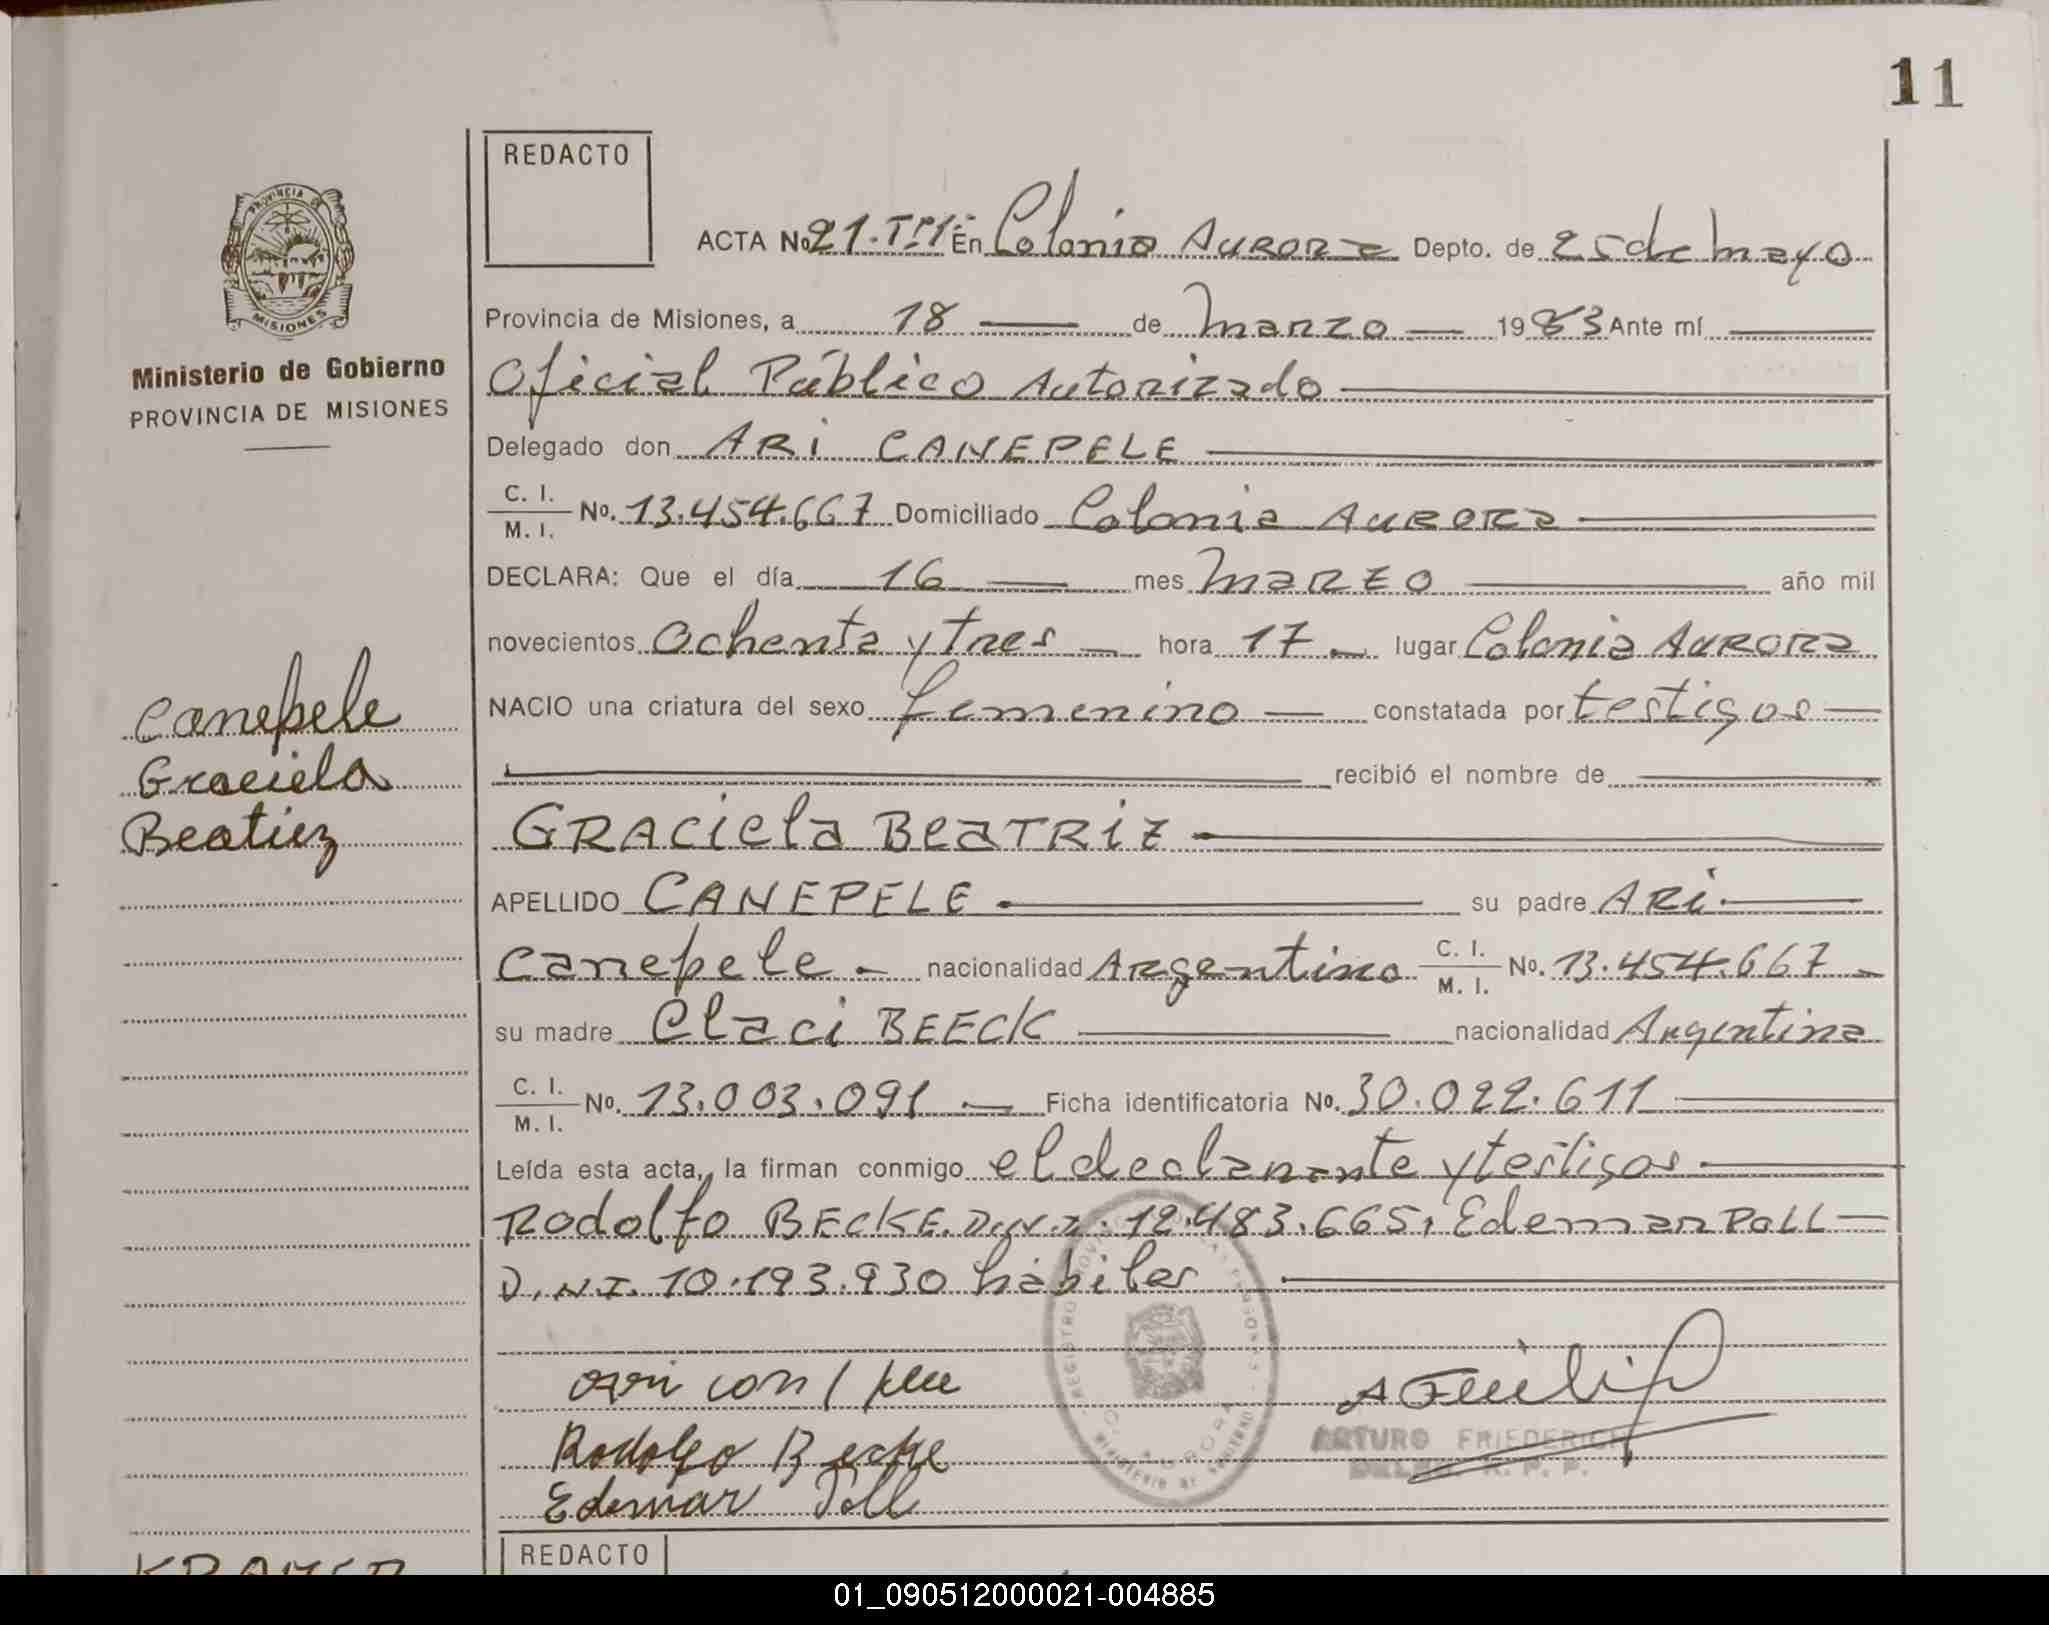 11
REDACTO
PROVINCIA DE
MISIONES
Ministerio de Gobierno
PROVINCIA DE MISIONES
ACTA No. 21. En Colonia Aurora Depto. de 25 de mayo
Provincia de Misiones, a 18 de marzo 1983 Ante mí
Oficial Público Autorizado
Delegado don ARI CANEPELE
C. I.
M. I. No. 13.454.667 Domiciliado Colonia Aurora
DECLARA: Que el día 16 mes marzo año mil
novecientos ochenta y tres hora 17 lugar Colonia Aurora
NACIO una criatura del sexo femenino constatada por testigos
recibió el nombre de
GRACiela BeaTRiz
APELLIDO CANEPELE su padre ARi
canepele nacionalidad Argentino C. I. M. I. No. 13.454.667
su madre Claci BEECK nacionalidad Argentina
C. I.
M. I. No. 13.003.091 Ficha identificatoria No. 30.022.611
Leída esta acta, la firman conmigo el declarante y testigos
Rodolfo BECKE. D.N.I. 12.483.665, Edemar Poll
D.N.I. 10.193.930 hábiles
Canepele
Graciela
Beatriz
Rodolfo Becke
Edemar Poll
ARTURO FRIEDERICH
DELEG. R. P. P.
REDACTO
01_090512000021-004885